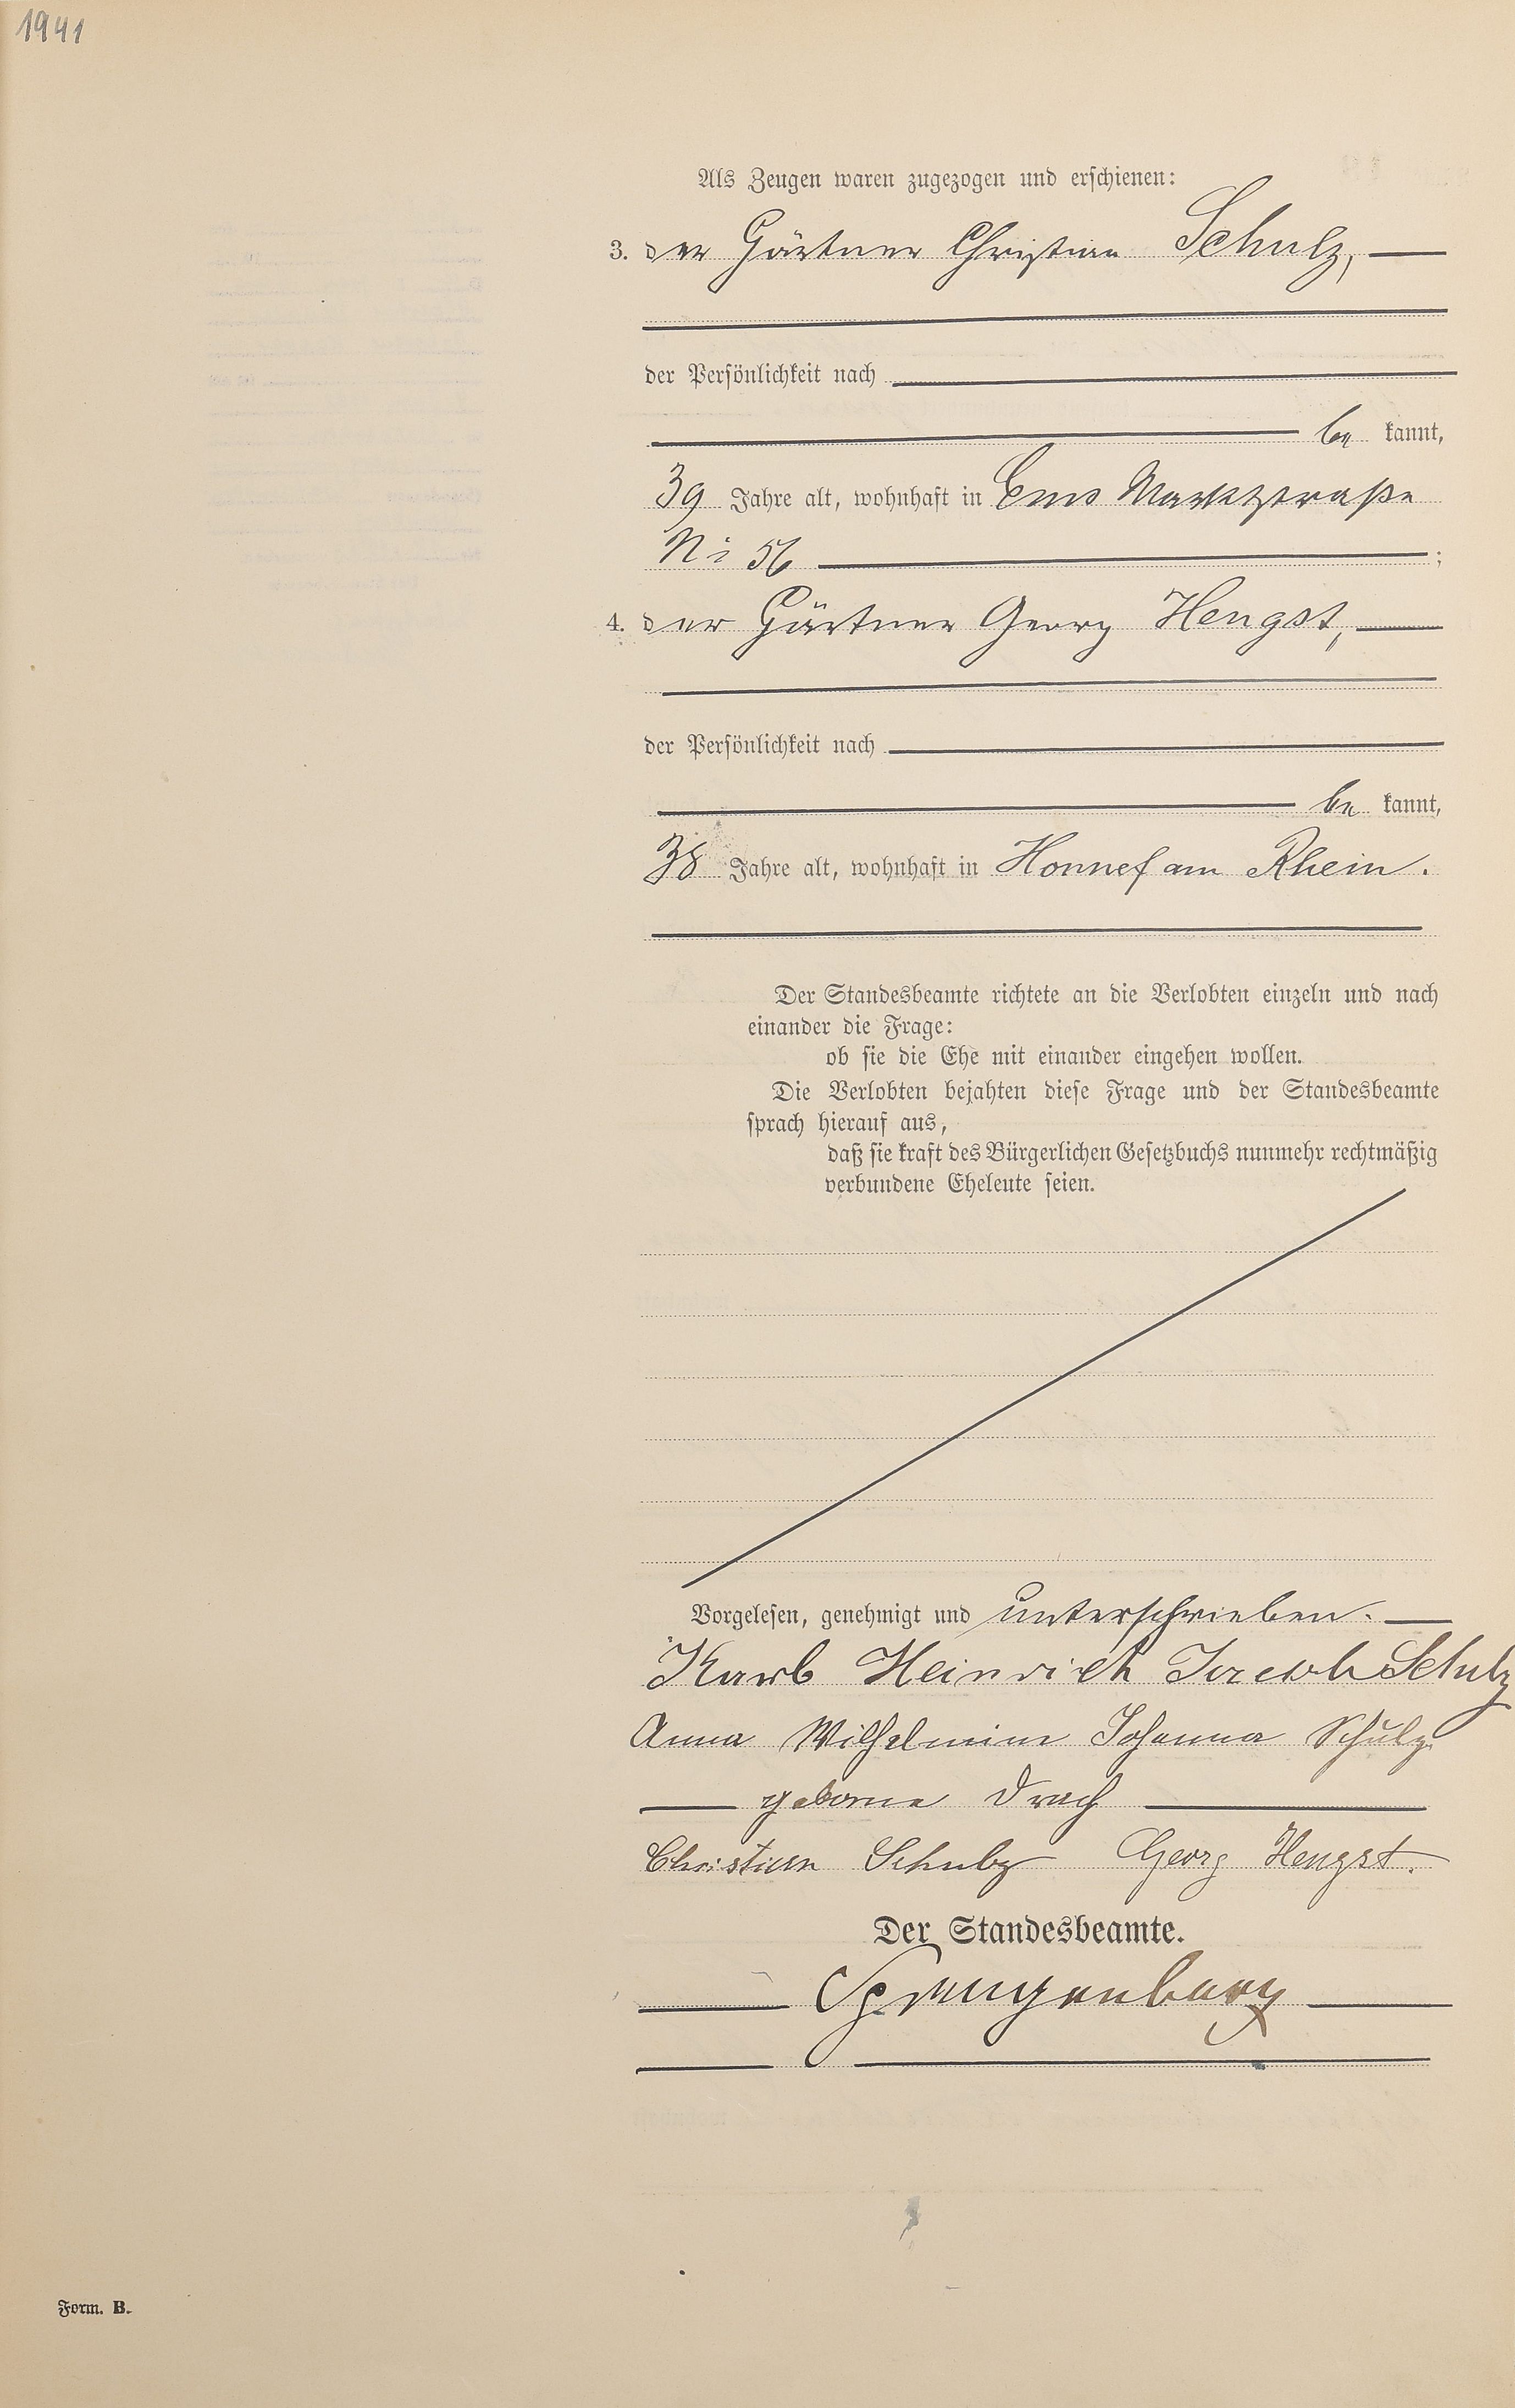 1941
Als Zeugen waren zugezogen und erschienen:
3. der Gärtner Christian Schulz,
der Persönlichkeit nach
be kannt,
39 Jahre alt, wohnhaft in Ems Marktstraße
No 56 ;
4. der Gärtner Georg Hengst,
der Persönlichkeit nach
be kannt,
38 Jahre alt, wohnhaft in Honnef am Rhein.
Der Standesbeamte richtete an die Verlobten einzeln und nach
einander die Frage:
ob sie die Ehe mit einander eingehen wollen.
Die Verlobten bejahten diese Frage und der Standesbeamte
sprach hierauf aus,
daß sie kraft des Bürgerlichen Gesetzbuchs nunmehr rechtmäßig
verbundene Eheleute seien.
Vorgelesen, genehmigt und unterschrieben.
Karl Heinrich Jacob Schulz
Anna Wilhelmine Johanna Schulz
geborne Drach
Christian Schulz Georg Hengst.
Der Standesbeamte.
Form. B.